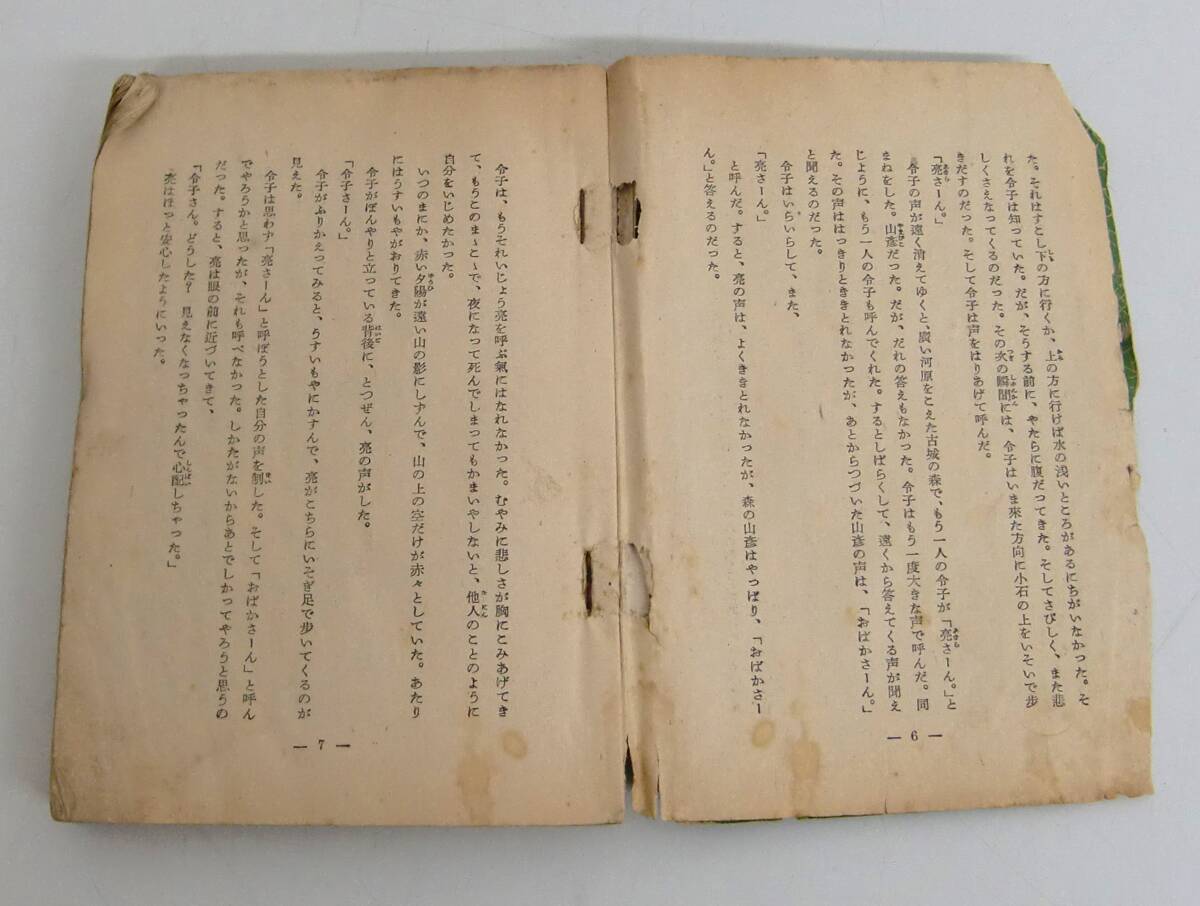 た。それはすこし下の方に行くか、上の方に行けば水の浅いところがあるにちがいなかった。そ
れを令子は知っていた。だが、そうする前に、やたらに腹だってきた。そしてさびしく、また悲
しくさえなってくるのだった。その次の瞬間には、令子はいま來た方向に小石の上をいそいで歩
きだすのだった。そして令子は声をはりあげて呼んだ。
「亮さーん。」
令子の声が遠く消えてゆくと、廣い河原をこえた古城の森で、もう一人の令子が「亮さーん。」と
まねをした。山彦だった。だが、だれの答えもなかった。令子はもう一度大きな声で呼んだ。同
じように、もう一人の令子も呼んでくれた。するとしばらくして、遠くから答えてくる声が聞え
た。その声ははっきりとききとれなかったが、あとからつづいた山彦の声は、「おばかさーん。」
と聞えるのだった。
令子はいらいらして、また、
「亮さーん。」
と呼んだ。すると、亮の声は、よくききとれなかったが、森の山彦はやっぱり、「おばかさー
ん。」と答えるのだった。
— 6 —
令子は、もうそれいじょう亮を呼ぶ氣にはなれなかった。むやみに悲しさが胸にこみあげてき
て、もうこのまゝこゝで、夜になって死んでしまってもかまいやしないと、他人のことのように
自分をいじめたかった。
いつのまにか、赤い夕陽が遠い山の影にしずんで、山の上の空だけが赤々としていた。あたり
にはうすいもやがおりてきた。
令子がぼんやりと立っている背後に、とつぜん、亮の声がした。
「令子さーん。」
令子がふりかえってみると、うすいもやにかすんで、亮がこちらにいそぎ足で歩いてくるのが
見えた。
令子は思わず「亮さーん」と呼ぼうとした自分の声を制した。そして「おばかさーん」と呼ん
でやろうかと思ったが、それも呼べなかった。しかたがないからあとでしかってやろうと思うの
だった。すると、亮は眼の前に近づいてきて、
「令子さん。どうした？ 見えなくなっちゃったんで心配しちゃった。」
亮はほっと安心したようにいった。
— 7 —